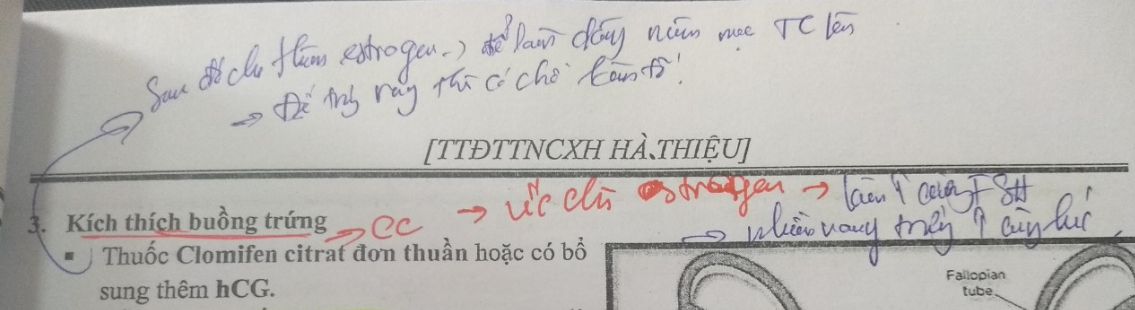 Sau đó cho thêm estrogen → để làm dày niêm mạc TC lên
→ Để trứng rụng thì có chỗ làm tổ!
[TTĐTTNCXH HÀ.THIỆU]
→ ức chế estrogen → làm ↑ cùng FSH
3. Kích thích buồng trứng → CC
→ nhiều nang trứng ↑ cùng lúc
▪ Thuốc Clomifen citrat đơn thuần hoặc có bổ
sung thêm hCG.
Fallopian
tube